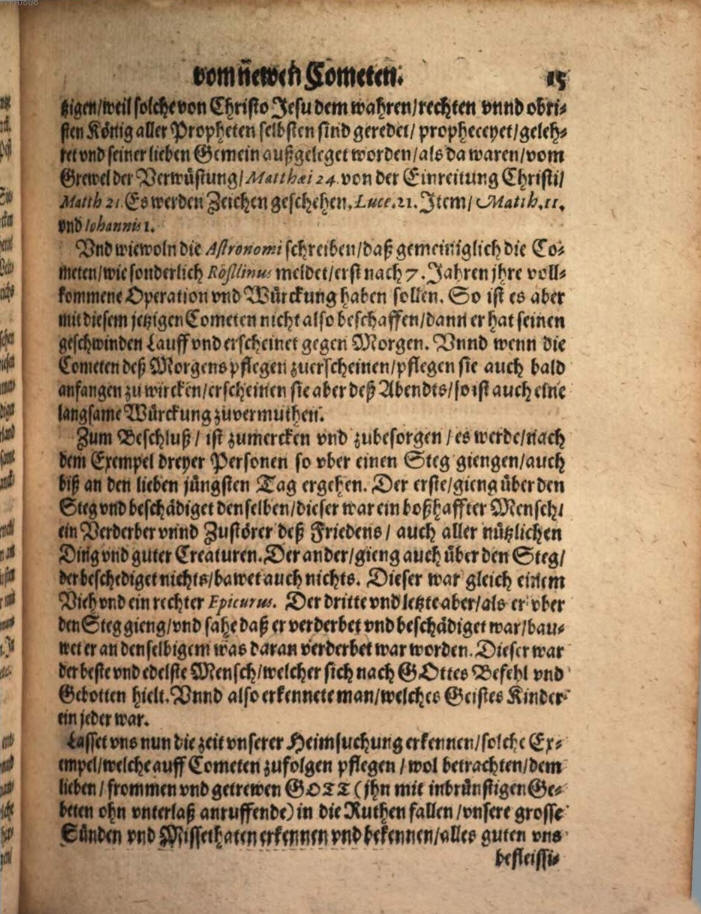 vom newen Cometen. 15
tzigen/weil solche von Christo Jesu dem wahren/rechten vnnd obri-
sten König aller Propheten selbsten sind geredet/ propheceyet/geleh-
ret vnd seiner lieben Gemein außgeleget worden/als da waren/vom
Grewel der Verwüstung/ Matthæi 24. von der Einreitung Christi/
Matth 21. Es werden Zeichen geschehen, Luce. 21. Item/ Matth. 11.
vnd Iohannis 1.
Vnd wiewoln die Astronomi schreiben/daß gemeiniglich die Co-
meten/wie sonderlich Röslinus meldet/erst nach 7. Jahren jhre voll-
kommene Operation vnd Würckung haben sollen. So ist es aber
mit diesem jetzigen Cometen nicht also beschaffen/dann er hat seinen
geschwinden Lauff vnd erscheinet gegen Morgen. Vnnd wenn die
Cometen deß Morgens pflegen zuerscheinen/pflegen sie auch bald
anfangen zu wircken/erscheinen sie aber deß Abendts/so ist auch eine
langsame Würckung zuvermuthen.
Zum Beschluß/ ist zumercken vnd zubesorgen/es werde/nach
dem Exempel dreyer Personen so vber einen Steg giengen/auch
biß an den lieben jüngsten Tag ergehen. Der erste/gieng über den
Steg vnd beschädiget denselben/dieser war ein boßhaffter Mensch/
ein Verderber vnnd Zustörer deß Friedens/ auch aller nützlichen
Ding vnd guter Creaturen. Der ander/gieng auch über den Steg/
der beschediget nichts/bawet auch nichts. Dieser war gleich einem
Vieh vnd ein rechter Epicurus. Der dritte vnd letzte aber/als er vber
den Steg gieng/vnd sahe daß er verderbet vnd beschädiget war/bau-
wet er an denselbigem was daran verderbet war worden. Dieser war
der beste vnd edelste Mensch/welcher sich nach GOttes Befehl vnd
Gebotten hielt. Vnnd also erkennete man/welches Geistes Kinder
ein jeder war.
Lasset vns nun die zeit vnserer Heimsuchung erkennen/solche Ex-
empel/welche auff Cometen zufolgen pflegen/wol betrachten/dem
lieben/frommen vnd getrewen GOTT (jhn mit inbrünstigen Ge-
beten ohn vnterlaß anruffende) in die Ruthen fallen/vnsere grosse
Sünden vnd Missethaten erkennen vnd bekennen/alles guten vns
befleissi-